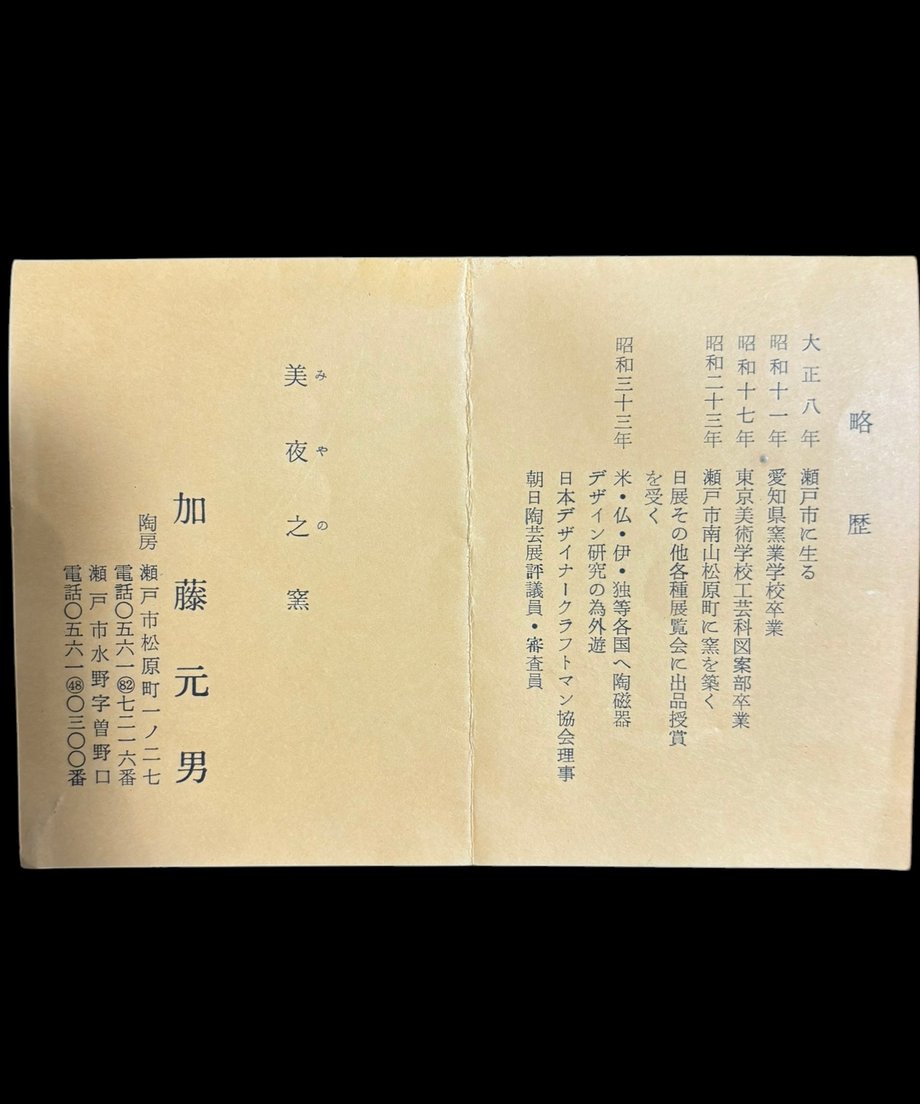 略歴
大正八年 瀬戸市に生る
昭和十一年 愛知県窯業学校卒業
昭和十七年 東京美術学校工芸科図案部卒業
昭和二十三年 瀬戸市南山松原町に窯を築く
日展その他各種展覧会に出品授賞
を受く
昭和三十三年 米・仏・伊・独等各国へ陶磁器
デザイン研究の為外遊
日本デザイナークラフトマン協会理事
朝日陶芸展評議員・審査員
美夜之窯
みやの
加藤元男
陶房 瀬戸市松原町一ノ二七
電話〇五六一㊷七二一六番
瀬戸市水野字曽野口
電話〇五六一㊽〇三〇〇番